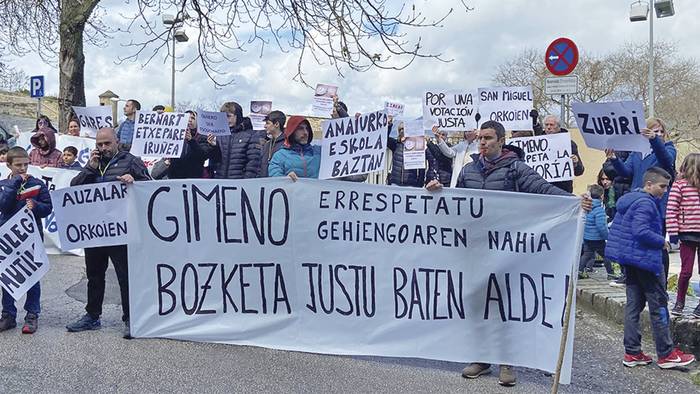 P
SARES
BERNART
ETXEPARE
IRUNEA
AMAIURKO
ESKOLA
BAZTAN
POR UNA
VOTACIÓN
JUSTA
SAN MIGUEL
ORKOIEN
ZUBIRI
AUZALAR
ORKOIEN
MUTIK
GIMENO ERRESPETATU
GEHIENGOAREN NAHIA
BOZKETA JUSTU BATEN ALDE